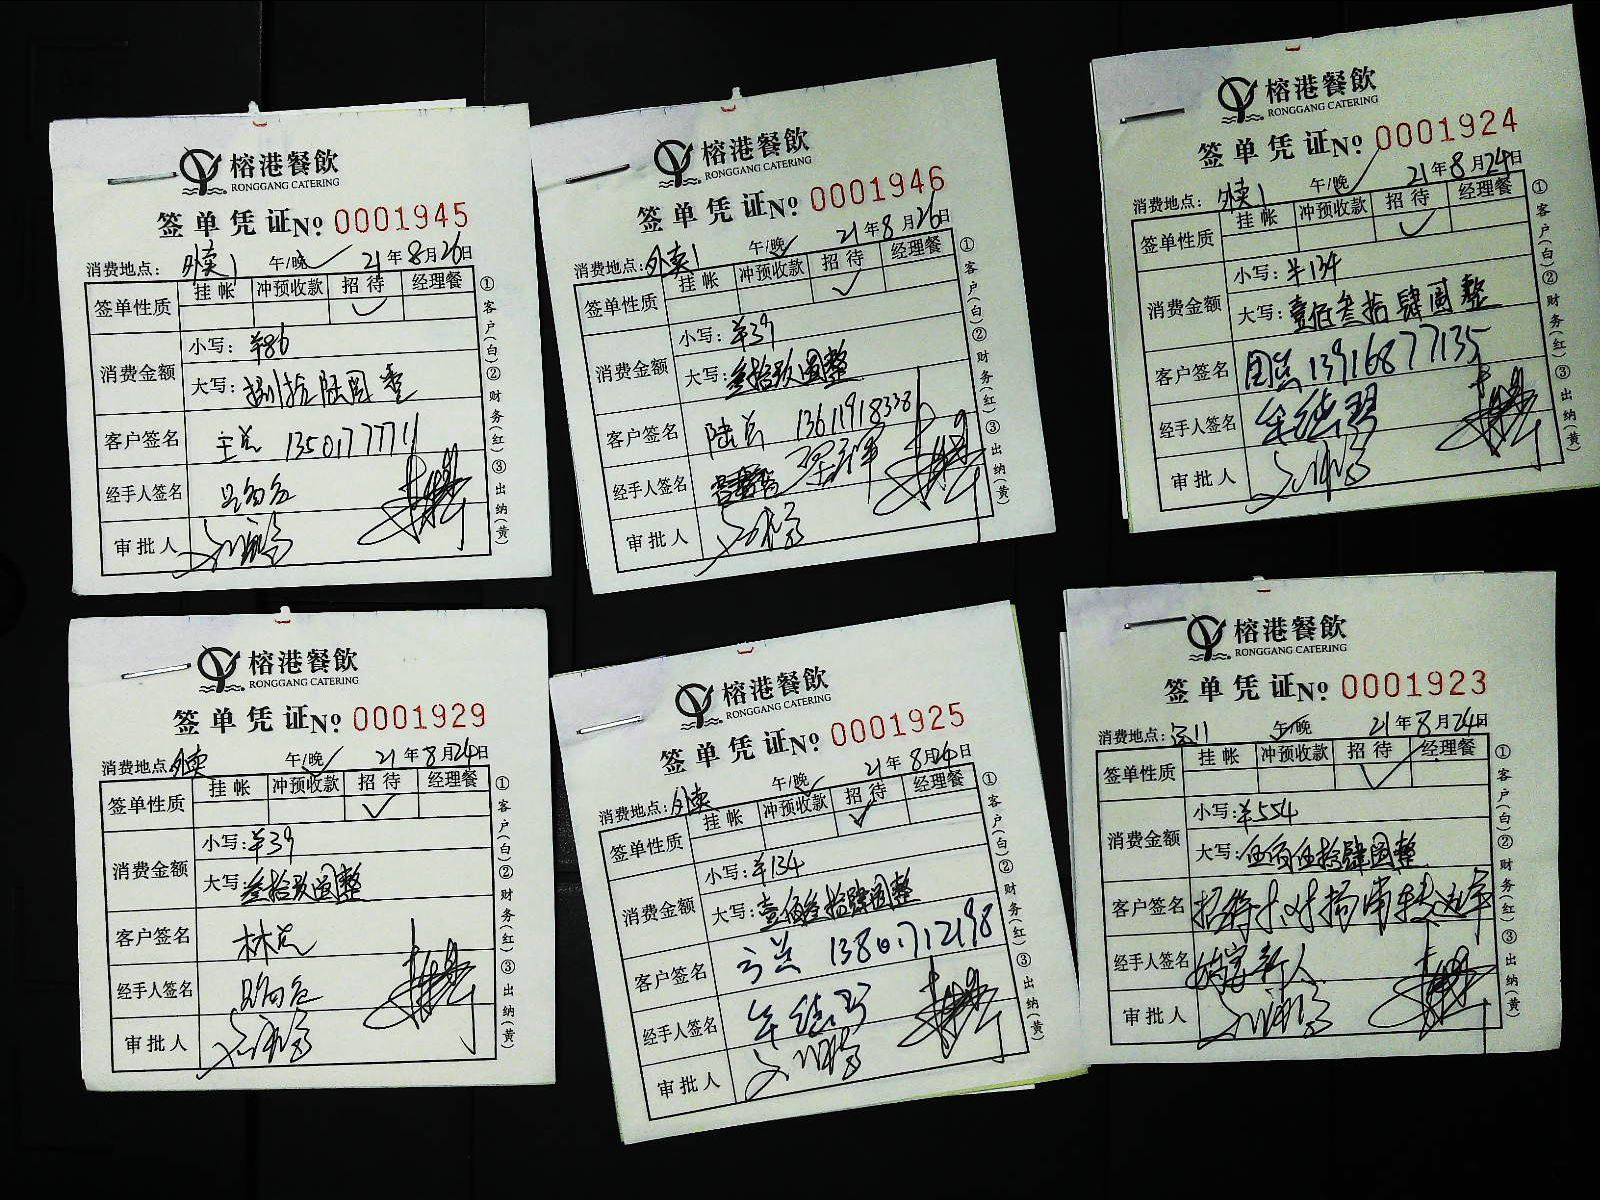 榕港餐飲
RONGGANG CATERING
签单凭证№ 0001945
消费地点: 外卖1 午/晚 ✓ 21年8月26日
签单性质 挂帐 冲预收款 招待 经理餐
✓
消费金额 小写: ¥86
大写: 捌拾陆圆整
客户签名 13501777711
经手人签名
审批人
①客户(白)②财务(红)③出纳(黄)
榕港餐飲
RONGGANG CATERING
签单凭证№ 0001946
消费地点: 外卖1 午/晚 ✓ 21年8月26日
签单性质 挂帐 冲预收款 招待 经理餐
✓
消费金额 小写: ¥39
大写: 叁拾玖圆整
客户签名 陆总 13611918338
经手人签名
审批人
①客户(白)②财务(红)③出纳(黄)
榕港餐飲
RONGGANG CATERING
签单凭证№ 0001924
消费地点: 外卖1 午/晚 ✓ 21年8月24日
签单性质 挂帐 冲预收款 招待 经理餐
✓
消费金额 小写: ¥134
大写: 壹佰叁拾肆圆整
客户签名 13916877135
经手人签名
审批人
①客户(白)②财务(红)③出纳(黄)
榕港餐飲
RONGGANG CATERING
签单凭证№ 0001929
消费地点: 外卖 午/晚 ✓ 21年8月24日
签单性质 挂帐 冲预收款 招待 经理餐
✓
消费金额 小写: ¥39
大写: 叁拾玖圆整
客户签名 林总
经手人签名
审批人
①客户(白)②财务(红)③出纳(黄)
榕港餐飲
RONGGANG CATERING
签单凭证№ 0001925
消费地点: 外卖 午/晚 ✓ 21年8月24日
签单性质 挂帐 冲预收款 招待 经理餐
✓
消费金额 小写: ¥134
大写: 壹佰叁拾肆圆整
客户签名 方总 13801712198
经手人签名
审批人
①客户(白)②财务(红)③出纳(黄)
榕港餐飲
RONGGANG CATERING
签单凭证№ 0001923
消费地点: 午/晚 21年8月24日
签单性质 挂帐 冲预收款 招待 经理餐
✓
消费金额 小写: ¥554
大写: 伍佰伍拾肆圆整
客户签名 招待
经手人签名
审批人
①客户(白)②财务(红)③出纳(黄)